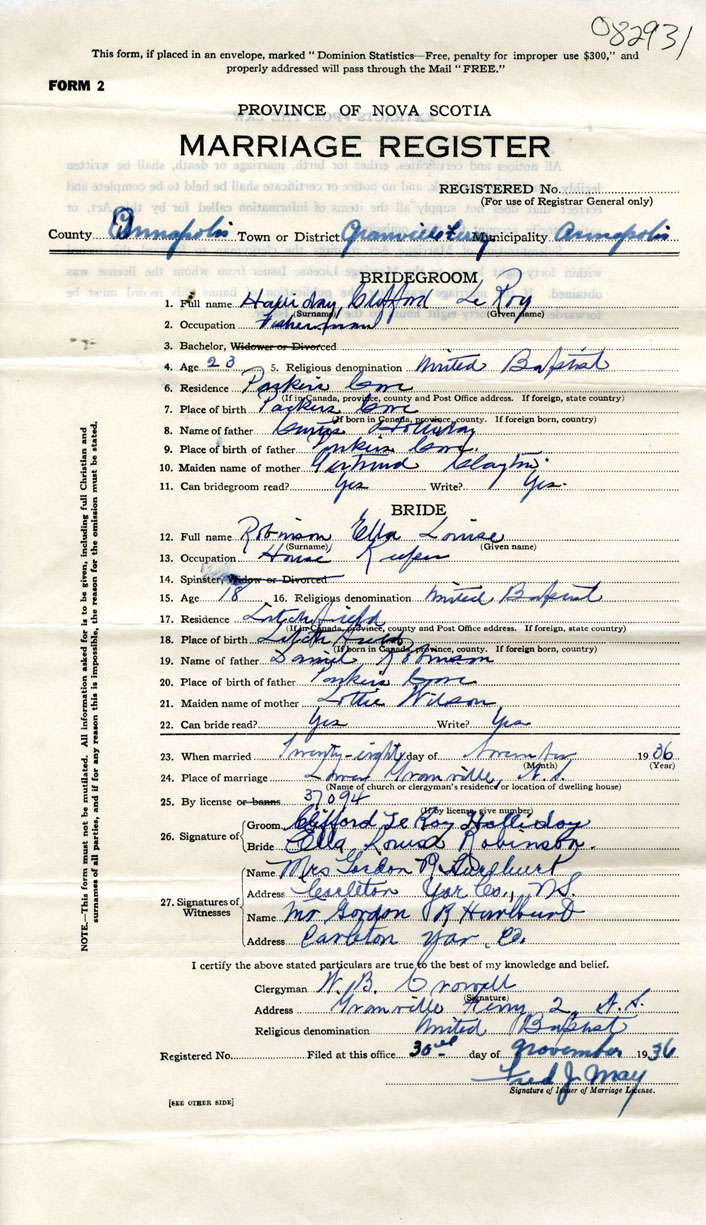 082931
This form, if placed in an envelope, marked "Dominion Statistics—Free, penalty for improper use $300," and
properly addressed will pass through the Mail "FREE."
FORM 2
PROVINCE OF NOVA SCOTIA
MARRIAGE REGISTER
REGISTERED No.
(For use of Registrar General only)
County Annapolis Town or District Granville Ferry Municipality Annapolis
BRIDEGROOM
1. Full name Haliday, Clifford Le Roy
(Surname) (Given name)
2. Occupation Fisherman
3. Bachelor, Widower or Divorced
4. Age 23 5. Religious denomination United Baptist
6. Residence Parkers Cove
(If in Canada, province, county and Post Office address. If foreign, state country)
7. Place of birth Parkers Cove
(If born in Canada, province, county. If foreign born, country)
8. Name of father
9. Place of birth of father Parkers Cove.
10. Maiden name of mother Gertrude Clayton
11. Can bridegroom read? Yes Write? Yes.
BRIDE
12. Full name Robinson Ella Louise
(Surname) (Given name)
13. Occupation House Keeper
14. Spinster, Widow or Divorced
15. Age 18 16. Religious denomination United Baptist
17. Residence Litchfield
(If in Canada, province, county and Post Office address. If foreign, state country)
18. Place of birth Litchfield
(If born in Canada, province, county. If foreign born, country)
19. Name of father Daniel Robinson
20. Place of birth of father Parkers Cove
21. Maiden name of mother Lottie Wilson
22. Can bride read? Yes Write? Yes
23. When married Twenty-eight day of November 1936
(Month) (Year)
24. Place of marriage Lower Granville, N.S.
(Name of church or clergyman's residence or location of dwelling house)
25. By license or banns 37094
(If by license, give number)
26. Signature of
Groom Clifford Le Roy Holliday
Bride Ella Louise Robinson.
27. Signatures of Witnesses
Name Mrs Gordon R Hurlburt
Address Carleton Yar Co., N.S.
Name Mr Gordon R Hurlburt
Address Carleton Yar. Co.
I certify the above stated particulars are true to the best of my knowledge and belief.
Clergyman W. B. Crowell
(Signature)
Address Granville Ferry 2, N.S.
Religious denomination United Baptist
Registered No. Filed at this office 30 day of November 1936
Fred J. May
Signature of Issuer of Marriage License.
[SEE OTHER SIDE]
NOTE.—This form must not be mutilated. All information asked for is to be given, including full Christian and
surnames of all parties, and if for any reason this is impossible, the reason for the omission must be stated.